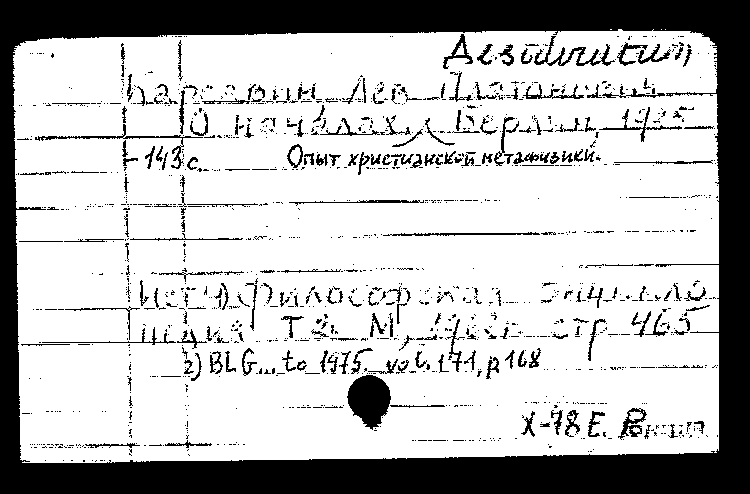 Desideratum
Карсавин, Лев Платонович
О началах. Берлин, 1925
- 143 с. Опыт христианской метафизики.
Ист. 1) Философская энцикло
педия. Т 2. М, 1962г. стр 465
2) BLG... to 1975. vol. 171, p 168
X-78 Е.